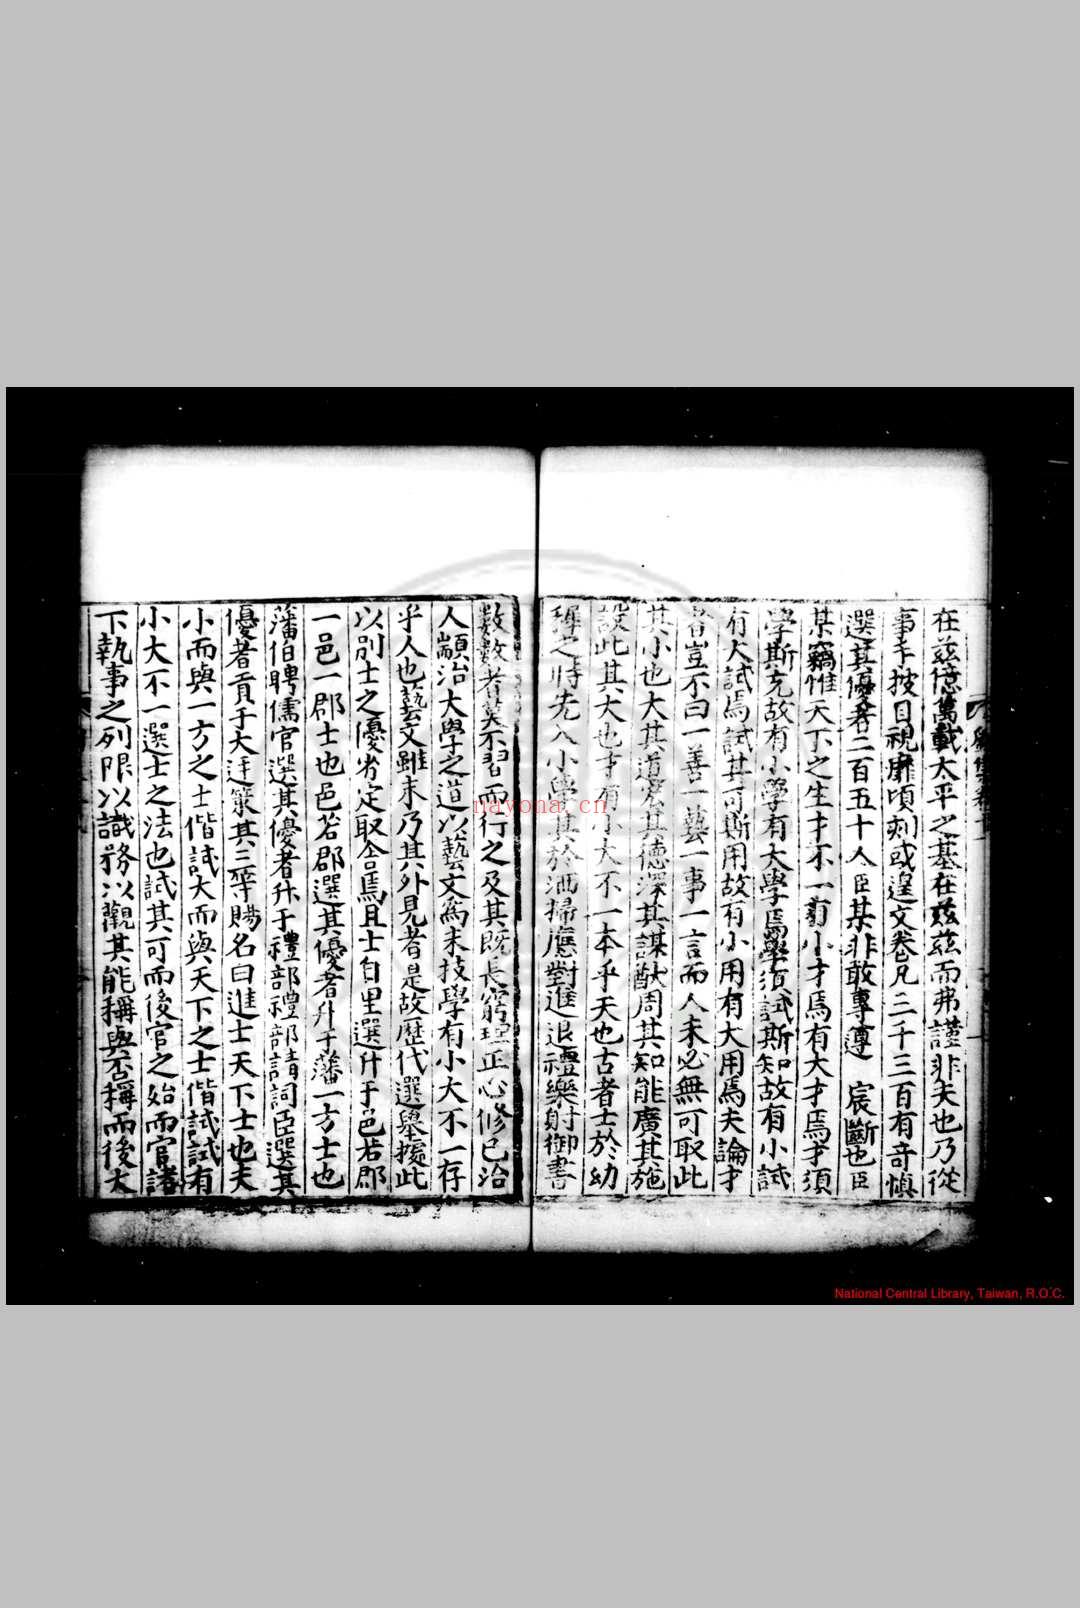 在茲億萬載太平之基在茲茲而弗謹非夫也乃從
事手披目視靡頃刻或遑文卷凡三千三百有奇慎
選其優者二百五十人臣某非敢專遵　宸斷也臣
某竊惟天下之生才不一有小才焉有大才焉才須
學斯充故有小學有大學焉學須試斯知故有小試
有大試焉試其可斯用故有小用有大用焉夫論才
者豈不曰一善一藝一事一言而人未必無可取此
其小也大其道宏其德深其謀猷周其知能廣其施
設此其大也才有小大不一本乎天也古者士於幼
穉之時先入小學其於洒掃應對進退禮樂射御書
數數者莫不習而行之及其既長窮理正心修己治
人顓治大學之道以藝文為末技學有小大不一存
乎人也藝文雖末乃其外見者是故歷代選舉據此
以別士之優劣定取舍焉且士自里選升于邑若郡
一邑一郡士也邑若郡選其優者升于藩一方士也
藩伯聘儒官選其優者升于禮部禮部請詞臣選其
優者貢于大廷策其三等賜名曰進士天下士也夫
小而與一方之士偕試大而與天下之士偕試試有
小大不一選士之法也試其可而後官之始而官諸
下執事之列限以識務以觀其能稱與否稱而後大
National Central Library, Taiwan, R.O.C.
nayona.cn